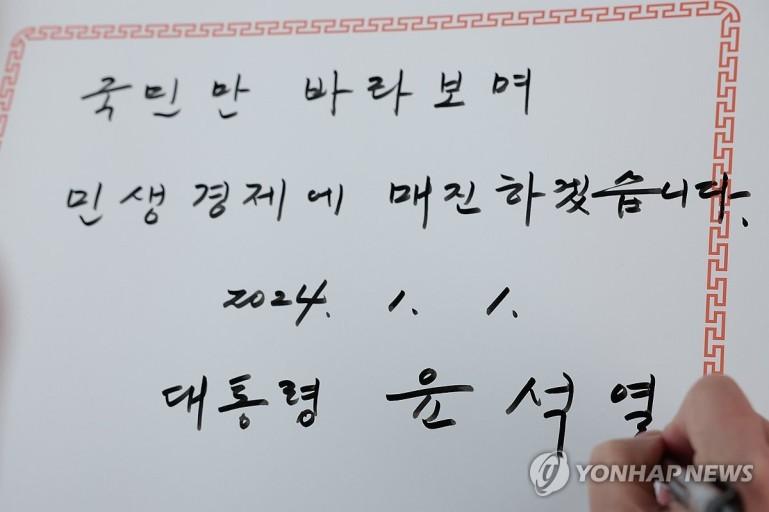 국민만 바라보며
민생경제에 매진하겠습니다.
2024. 1. 1.
대통령 윤석열
YONHAP NEWS